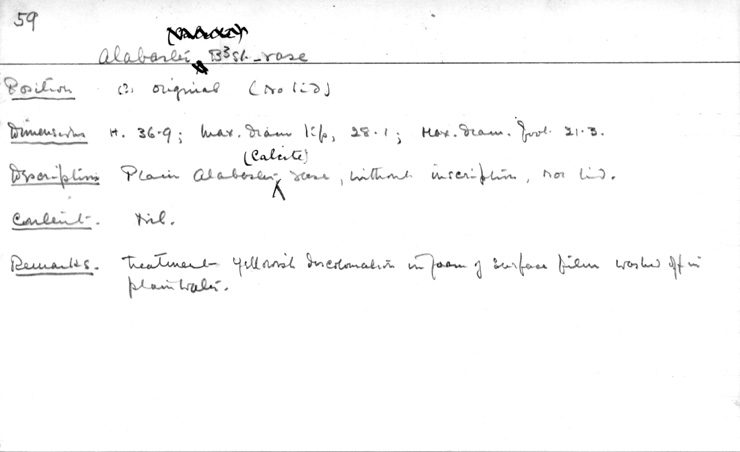 59
Alabaster B3st-vase
Position (?) original (No lid)
Dimensions H. 36.9; Max. diam lip, 28.1; Max. diam. foot 21.3.
(Calcite)
Description Plain Alabaster vase, without inscription, nor lid.
Content. Nil.
Remarks. Treatment yellowish discolouration in form of surface film washed off in
plain water.